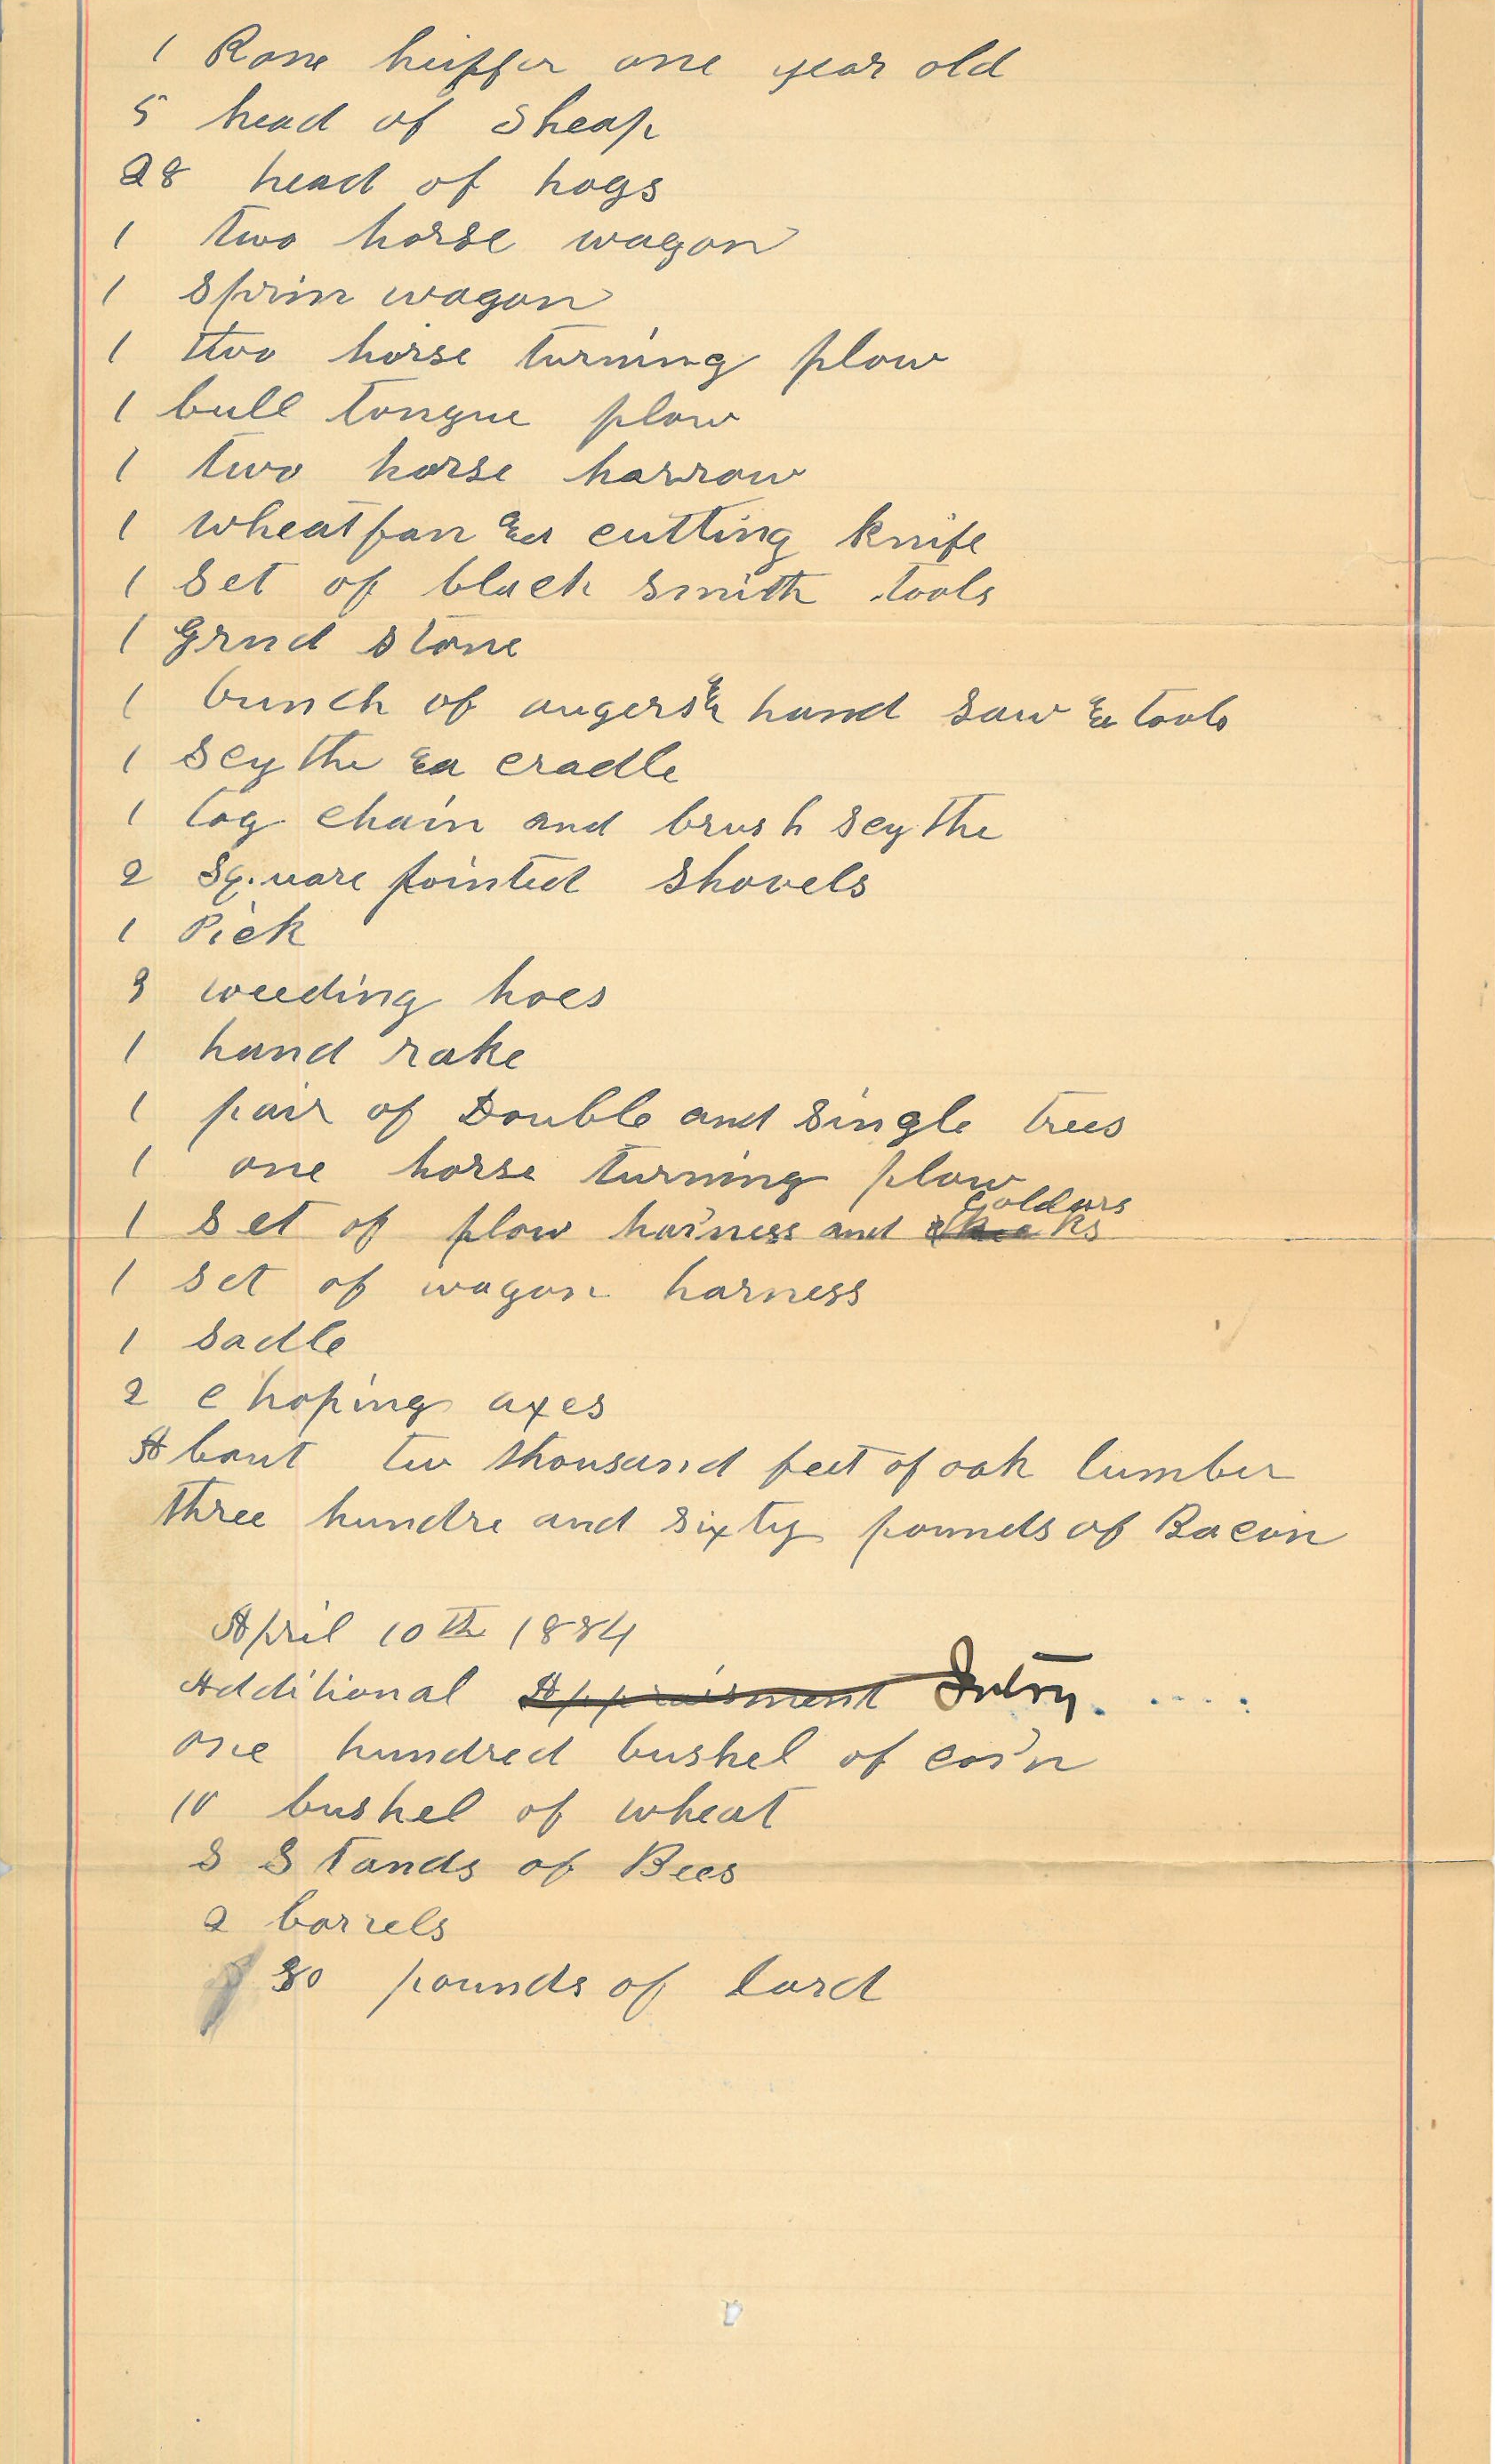 1 Rone heiffer one year old
5 head of Sheap
28 head of hogs
1 two horse wagon
1 Sprin wagon
1 two horse turning plow
1 bull tongue plow
1 two horse harrow
1 wheat fan & cutting knife
1 Set of black smith tools
1 Grnd stone
1 bunch of augers & hand saw & tools
1 Scythe & cradle
1 log chain and brush scythe
2 Square pointed shovels
1 Pick
3 weeding hoes
1 hand rake
1 pair of Double and single trees
1 one horse turning plow
1 set of plow harness and Coldars
1 set of wagon harness
1 sadle
2 choping axes
About tw thousand feet of oak lumber
three hundre and sixty pounds of Bacon
April 10th 1884
Additional Appraisment Intry
one hundred bushel of corn
10 bushel of wheat
8 Stands of Bees
2 barrels
30 pounds of lard